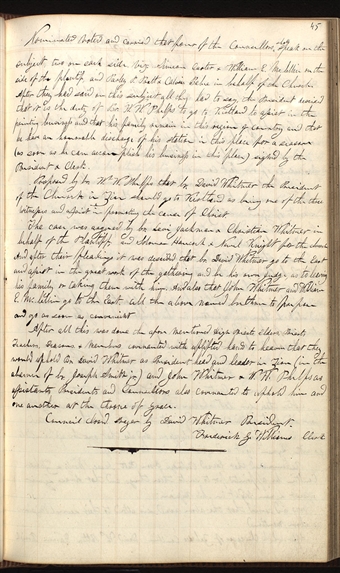 45
Nominated Voted and carried that four of the Councillors, shall speak on the
subject two on each side. viz Simeon Carter & William E. McLellin on the
side of the plaintiff and Parley P. Pratt & Calvin Bebe in behalf of the Church.
After they had said on this subject all they had to say, the President decided
that it is the duty of Br. W. W. Phelps to go to Kirtland to assist in the
printing business and that his family remain in this region of country and that
he have an honorable discharge of his station in this place for a season
(as soon as he can accomplish his business in this place) signed by the
President & Clerk.
Proposed by br. W. W. Phelps that br. David Whitmer the President
of the Church in Zion should go to Kirtland as being one of the three
witnesses and assist in promoting the cause of Christ
The case was argued by br. Levi Jackman & Christian Whitmer in
behalf of the Plaintiff, and Solomon Hancock & Newel Knight for the Church
and after their pleadings it was decided that br. David Whitmer go to the East
and assist in the great work of the gathering and be his own judge as to leaving
his family or taking them with him. Decided that John Whitmer and William
E. McLellin go to the East. all the above named brethren to prepare
and go as soon as convenient
After all this was done the afore mentioned High Priests Elders Priests
Teachers, Deacons & Members covenanted with uplifted hand to heaven that they
would uphold Br. David Whitmer as President head and leader in Zion (in the
absence of br. Joseph Smith jr) and John Whitmer & W. W. Phelps as
assistant Presidents and Councillors also covenanted to uphold him and
one another at the throne of Grace.
Council closed prayer by David Whitmer President.
Frederick G. Williams Clerk